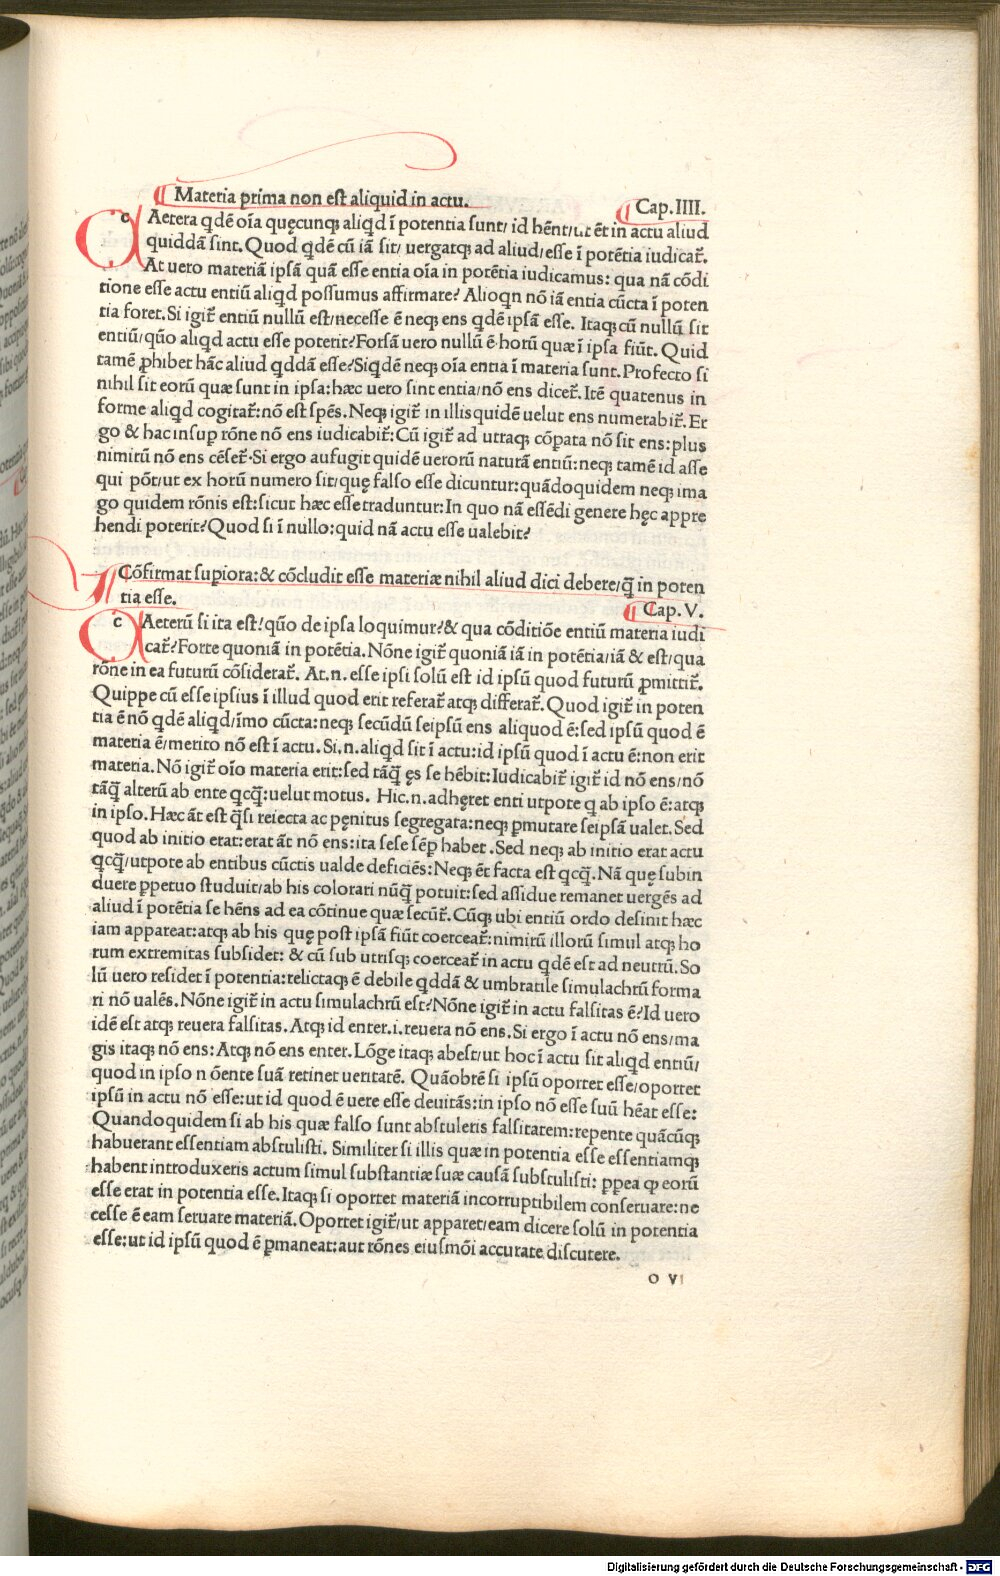 Materia prima non est aliquid in actu.
Cap.IIII.
cAetera qdē oīa quęcunqȝ aliqd ī potentia sunt/ id hēnt/ut ēt in actu aliud
quiddā sint. Quod qdē cū iā sit/ uergatqȝ ad aliud/esse ī potētia iudicat̄.
At uero materiā ipsā quā esse entia oīa in potētia iudicamus: qua nā cōdi
tione esse actu entiū aliqd possumus affirmare? Alioqn nō iā entia cūcta ī poten
tia foret. Si igit̄ entiū nullū est/necesse ē neqȝ ens qdē ipsā esse. Itaqȝ cū nullū sit
entiū/quō aliqd actu esse poterit? Forsā uero nullū ē horū quæ ī ipsa fiūt. Quid
tamē ꝓhibet hāc aliud qddā esse? Siqdē neqȝ oīa entia ī materia sunt. Profecto si
nihil sit eorū quæ sunt in ipsa: hæc uero sint entia/nō ens dicet̄. Itē quatenus in
forme aliqd cogitat̄: nō est spēs. Neqȝ igit̄ in illis quidē uelut ens numerabit̄. Er
go & hac insup rōne nō ens iudicabit̄: Cū igit̄ ad utraqȝ cōpata nō sit ens: plus
nimirū nō ens cēset̄. Si ergo aufugit quidē uerorū naturā entiū: neqȝ tamē id asse
qui pōt/ut ex horū numero sit/quę falso esse dicuntur: quādoquidem neqȝ ima
go quidem rōnis est: sicut hæc esse traduntur: In quo nā essēdi genere hęc appre
hendi poterit? Quod si ī nullo: quid nā actu esse ualebit?
Cōfirmat supiora: & cōcludit esse materiæ nihil aliud dici debere/q̄ in poten
tia esse.
Cap.V.
cAeterū si ita est/quō de ipsa loquimur? & qua cōditiōe entiū materia iudi
cat̄? Forte quoniā in potētia. Nōne igit̄ quoniā iā in potētia/iā & est/qua
rōne in ea futurū cōsiderat̄. At.n.esse ipsi solū est id ipsū quod futurū ꝓmittit̄.
Quippe cū esse ipsius ī illud quod erit referat̄ atqȝ differat̄. Quod igit̄ in poten
tia ē nō qdē aliqd/imo cūcta: neqȝ secūdū seipsū ens aliquod ē: sed ipsū quod ē
materia ē/merito nō est ī actu. Si.n.aliqd sit ī actu: id ipsū quod ī actu ē: non erit
materia. Nō igit̄ oīo materia erit: sed tāq̄ ęs se hēbit: Iudicabit̄ igit̄ id nō ens/nō
tāq̄ alterū ab ente qcq̄: uelut motus. Hic.n.adhęret enti utpote q ab ipso ē: atqȝ
in ipso. Hæc āt est q̄si reiecta ac pęnitus segregata: neqȝ ꝑmutare seipsā ualet. Sed
quod ab initio erat: erat āt nō ens: ita sese sēp habet. Sed neqȝ ab initio erat actu
qcq̄/utpote ab entibus cūctis ualde deficiēs: Neqȝ ēt facta est qcq̄. Nā quę subin
duere ꝑpetuo studuit/ab his colorari nūq̄ potuit: sed assidue remanet uergēs ad
aliud ī potētia se hēns ad ea cōtinue quæ secūt̄. Cūqȝ ubi entiū ordo desinit hæc
iam appareat: atqȝ ab his quę post ipsā fiūt coerceat̄: nimirū illorū simul atqȝ ho
rum extremitas subsidet: & cū sub utrisqȝ coerceat̄ in actu qdē est ad neutrū. So
lū uero residet ī potentia: relictaqȝ ē debile qddā & umbratile simulachrū forma
ri nō ualēs. Nōne igit̄ in actu simulachrū est? Nōne igit̄ in actu falsitas ē? Id uero
idē est atqȝ reuera falsitas. Atqȝ id enter.i.reuera nō ens. Si ergo ī actu nō ens/ma
gis itaqȝ nō ens: Atqȝ nō ens enter. Lōge itaqȝ abest/ut hoc ī actu sit aliqd entiū/
quod in ipso n ōente suā retinet ueritatē. Quāobrē si ipsū oportet esse/oportet
ipsū in actu nō esse: ut id quod ē uere esse deuitās: in ipso nō esse suū hēat esse:
Quandoquidem si ab his quæ falso sunt abstuleris falsitatem: repente quācūqȝ
habuerant essentiam abstulisti. Similiter si illis quæ in potentia esse essentiamqȝ
habent introduxeris actum simul substantiæ suæ causā substulisti: ꝓpea ꝙ eorū
esse erat in potentia esse. Itaqȝ si oportet materiā incorruptibilem conseruare: ne
cesse ē eam seruare materiā. Oportet igit̄/ut apparet/eam dicere solū in potentia
esse: ut id ipsū quod ē ꝑmaneat: aut rōnes eiusmōi accurate discutere.
o vi
Digitalisierung gefördert durch die Deutsche Forschungsgemeinschaft - DFG